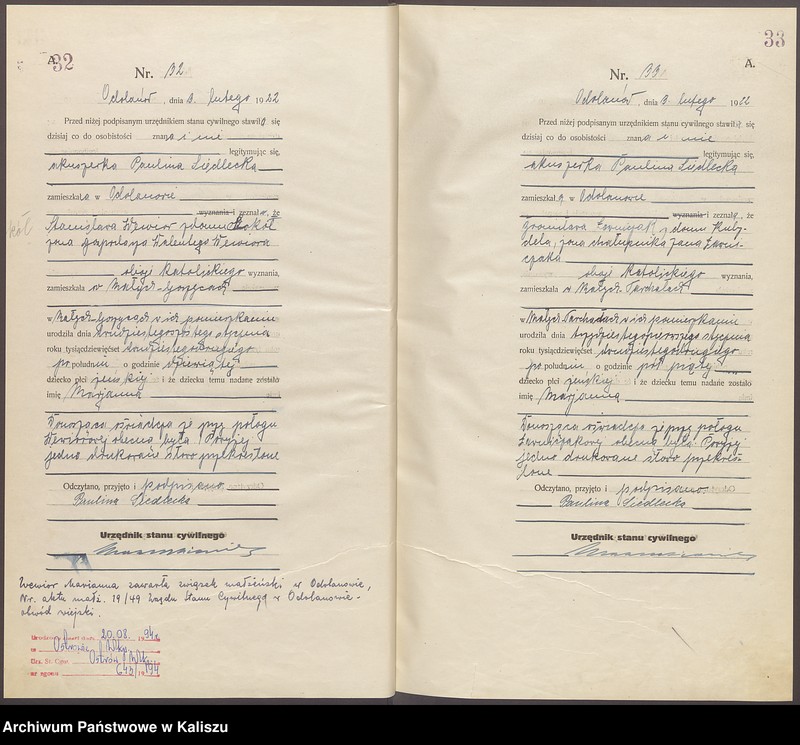 A.
32
Nr. 32
Odolanów, dnia 3. lutego 1922
Przed niżej podpisanym urzędnikiem stanu cywilnego stawiła się
dzisiaj co do osobistości znana i nie
legitymując się,
akuszerka Paulina Siedlecka
zamieszkała w Odolanowie
wyznania i zeznała, że
Stanisława Wewior z domu
żona Walentego Wewiora
oboje katolickiego wyznania,
zamieszkała w Małych-Gorzycach
w Małych-Gorzycach w ich pomieszkaniu
urodziła dnia dwudziestego szóstego stycznia
roku tysiącdziewięćset dwudziestego drugiego
po południu, o godzinie dziewiątej
dziecko płci żeńskiej i że dziecku temu nadane zostało
imię Marjanna
Donosząca oświadcza że przy połogu
Wewiorowej obecna była. Powyżej
jedno drukowane słowo przekreślone
Odczytano, przyjęto i podpisano.
Paulina Siedlecka
Urzędnik stanu cywilnego
Wewior Marianna zawarła związek małżeński w Odolanowie,
Nr. aktu małż. 19/49 Urzędu Stanu Cywilnego w Odolanowie-
obwód wiejski.
20.08. 1994 r.
w Ostrowie Wlkp.
Urz. St. Cyw. Ostrów Wlkp.
nr zgonu 643/1994
33
A.
Nr. 33
Odolanów, dnia 3. lutego 1922
Przed niżej podpisanym urzędnikiem stanu cywilnego stawiła się
dzisiaj co do osobistości znana i nie
legitymując się,
akuszerka Paulina Siedlecka
zamieszkała w Odolanowie
wyznania i zeznała, że
z domu
żona chałupnika Jana
oboje katolickiego wyznania,
zamieszkała w Małych Tarchałach
w Małych Tarchałach w ich pomieszkaniu
urodziła dnia trzydziestego pierwszego stycznia
roku tysiącdziewięćset dwudziestego drugiego
po południu, o godzinie pół piątej
dziecko płci żeńskiej i że dziecku temu nadane zostało
imię Marjanna
Donosząca oświadcza że przy połogu
obecna była. Powyżej
jedno drukowane słowo przekreś-
lone
Odczytano, przyjęto i podpisano.
Paulina Siedlecka
Urzędnik stanu cywilnego
Archiwum Państwowe w Kaliszu